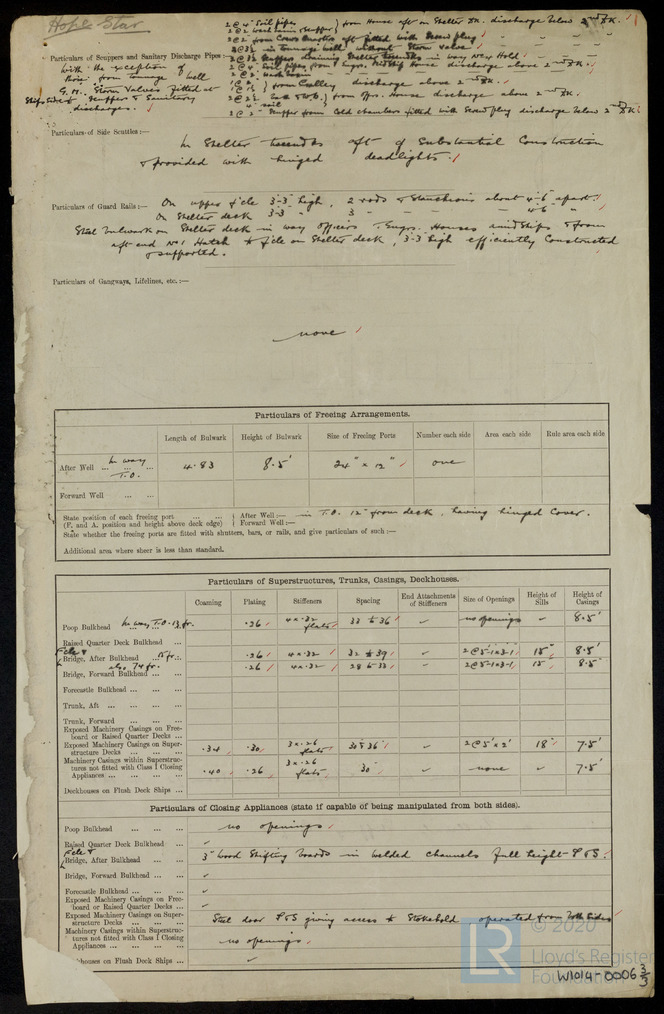 Hope Star
2 @ 4" Soil pipes } from House aft on Shelter DK. discharge below 2nd DK.
2 @ 2" wash basin & scupper
2 @ 2" from Crews Quarters aft fitted with screw plug
in tonnage well without Storm Valve
Scuppers draining Shelter tweendks in way No 4 Hold
Soil pipes from Engrs. Midship House discharge above 2nd DK.
} from Galley discharge above 2nd DK.
} from Offrs. House discharge above 2nd DK.
2 @ 2" Scupper from Cold chambers fitted with Screw plug discharge below 2nd DK.
Particulars of Scuppers and Sanitary Discharge Pipes:—
With the exception of
those from tonnage well
G.M. Storm Valves fitted at
Ships side to Scuppers & Sanitary
discharges.
Particulars of Side Scuttles:—
In Shelter tweendks aft of Substantial Construction
& provided with hinged deadlights.
Particulars of Guard Rails:—
On upper f'cle 3-3 high, 2 rods & Stanchions about 4-6 apart.
On Shelter deck 3-3 " 3 — — — 4-6 "
Steel bulwark on Shelter deck in way Officers & Engrs. Houses amidships & from
aft end No 1 Hatch to f'cle on Shelter deck, 3-3 high efficiently Constructed
& supported.
Particulars of Gangways, Lifelines, etc.:—
none
Particulars of Freeing Arrangements.
Length of Bulwark Height of Bulwark Size of Freeing Ports Number each side Area each side Rule area each side
After Well ... In way T.O. ... 4.83 8.5' 24" x 12" one
Forward Well ... ...
State position of each freeing port ... ... (F. and A. position and height above deck edge) { After Well:— in T.O. 12" from deck, having hinged Cover.
Forward Well:—
State whether the freeing ports are fitted with shutters, bars, or rails, and give particulars of such:—
Additional area where sheer is less than standard.
Particulars of Superstructures, Trunks, Casings, Deckhouses.
Coaming Plating Stiffeners Spacing End Attachments of Stiffeners Size of Openings Height of Sills Height of Casings
Poop Bulkhead In way T.O. 13 fr. .26 4 x .32 flats 33 to 36 ✓ no openings ✓ 8.5'
Raised Quarter Deck Bulkhead ...
F'cle &
Bridge, After Bulkhead ... 15 fr. .26 4 x .32 32 to 39 ✓ 2@5-1x3-1 18" 8.5'
Bridge, Forward Bulkhead ... also 74 fr. .26 4 x .32 28 to 33 ✓ 2@5-1x3-1 18" 8.5'
Forecastle Bulkhead ... ...
Trunk, Aft ... ... ...
Trunk, Forward ... ... ...
Exposed Machinery Casings on Free-
board or Raised Quarter Decks ...
Exposed Machinery Casings on Super-
structure Decks ... ... ... .34 .30 3 x .26 flats 30 to 36 ✓ 2@5'x2' 18" 7.5'
Machinery Casings within Superstruc-
tures not fitted with Class I Closing
Appliances ... ... ... .40 .26 3 x .26 flats 30 ✓ none ✓ 7.5'
Deckhouses on Flush Deck Ships ...
Particulars of Closing Appliances (state if capable of being manipulated from both sides).
Poop Bulkhead ... ... ... no openings
Raised Quarter Deck Bulkhead ... ✓
F'cle &
Bridge, After Bulkhead ... ... 3" Wood Shifting boards in welded channels full height P & S.
Bridge, Forward Bulkhead ... ... ✓
Forecastle Bulkhead ... ... ... ✓
Exposed Machinery Casings on Free-
board or Raised Quarter Decks ... ✓
Exposed Machinery Casings on Super-
structure Decks ... ... ... Steel door P & S giving access to Stokehold operated from both sides
Machinery Casings within Superstruc-
tures not fitted with Class I Closing
Appliances ... ... ... no openings.
khouses on Flush Deck Ships ... ✓
LR
© 2020
Lloyd's Register
Foundation
W1014-0006 3/3